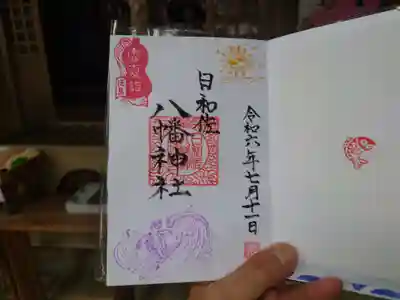 令和六年七月十一日
日和佐
八幡神社